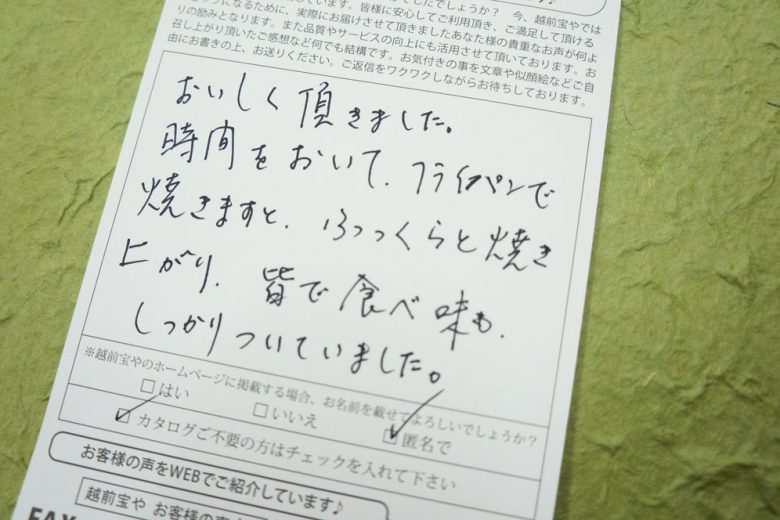 今、越前宝やでは
皆様に安心してご利用頂き、ご満足して頂ける
ップになるために、実際にお届けさせて頂きましたあなた様の貴重なお声が何よ
りの励みとなります。また品質やサービスの向上にも活用させて頂いております。お
召し上がり頂いたご感想など何でも結構です。お気付きの事を文章や似顔絵などご自
由にお書きの上、お送りください。ご返信をワクワクしながらお待ちしております。
おいしく頂きました。
時間をおいて、フライパンで
焼きますと、ふっくらと焼き
上がり、皆で食べ味も、
しっかりついていました。
※越前宝やのホームページに掲載する場合、お名前を載せてよろしいでしょうか?
□はい □いいえ ☑匿名で
☑ カタログご不要の方はチェックを入れて下さい
お客様の声をWEBでご紹介しています♪
越前宝や お客様の声
FAX